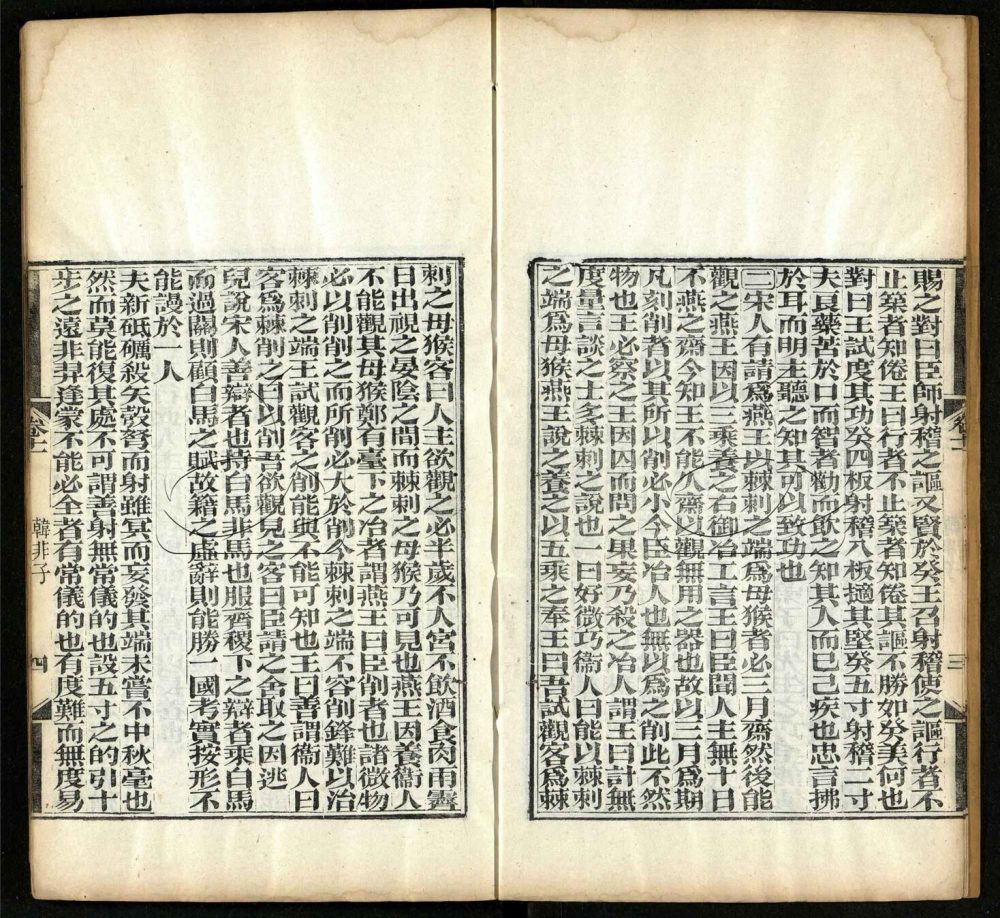 賜之對曰臣師射稽之謳又賢於癸王召射稽使之謳行者不
止築者知倦王曰行者不止築者知倦其謳不勝如癸美何也
對曰王試度其功癸四板射稽八板擿其堅癸五寸射稽二寸
夫良藥苦於口而智者勸而飲之知其入而已己疾也忠言拂
於耳而明主聽之知其可以致功也
二宋人有請爲燕王以棘刺之端爲母猴者必三月齋然後能
觀之燕王因以三乘養之右御冶工言王曰臣聞人主無十日
不燕之齋今知王不能久齋以觀無用之器也故以三月爲期
凡刻削者以其所以削必小今臣冶人也無以爲之削此不然
物也王必察之王因囚而問之果妄乃殺之冶人謂王曰計無
度量言談之士多棘刺之說也一曰好微巧衞人曰能以棘刺
之端爲母猴燕王說之養之以五乘之奉王曰吾試觀客爲棘
卷十一
三
刺之母猴客曰人主欲觀之必半歲不入宮不飲酒食肉雨霽
日出視之晏陰之間而棘刺之母猴乃可見也燕王因養衞人
不能觀其母猴鄭有臺下之冶者謂燕王曰臣削者也諸微物
必以削削之而所削必大於削今棘刺之端不容削鋒難以治
棘刺之端王試觀客之削能與不能可知也王曰善謂衞人曰
客爲棘削之曰以削吾欲觀見之客曰臣請之舍取之因逃
兒說宋人善辯者也持白馬非馬也服齊稷下之辯者乘白馬
而過關則顧白馬之賦故籍之虛辭則能勝一國考實按形不
能謾於一人
夫新砥礪殺矢彀弩而射雖冥而妄發其端未嘗不中秋毫也
然而莫能復其處不可謂善射無常儀的也設五寸之的引十
步之遠非羿逢蒙不能必全者有常儀的也有度難而無度易
卷十一
韓非子
四